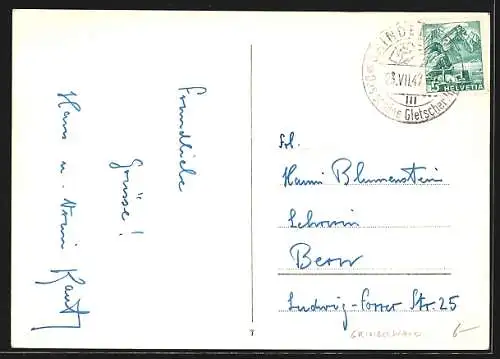 Freundliche
Grüsse!
Hans u.
GRINDEL
23.VII.47
III
Gletscher
5 HELVETIA
Frl.
Hanni Blumenstein
Lehrerin
Bern
Ludwig-Forrer Str. 25
GRINDELWALD
6-